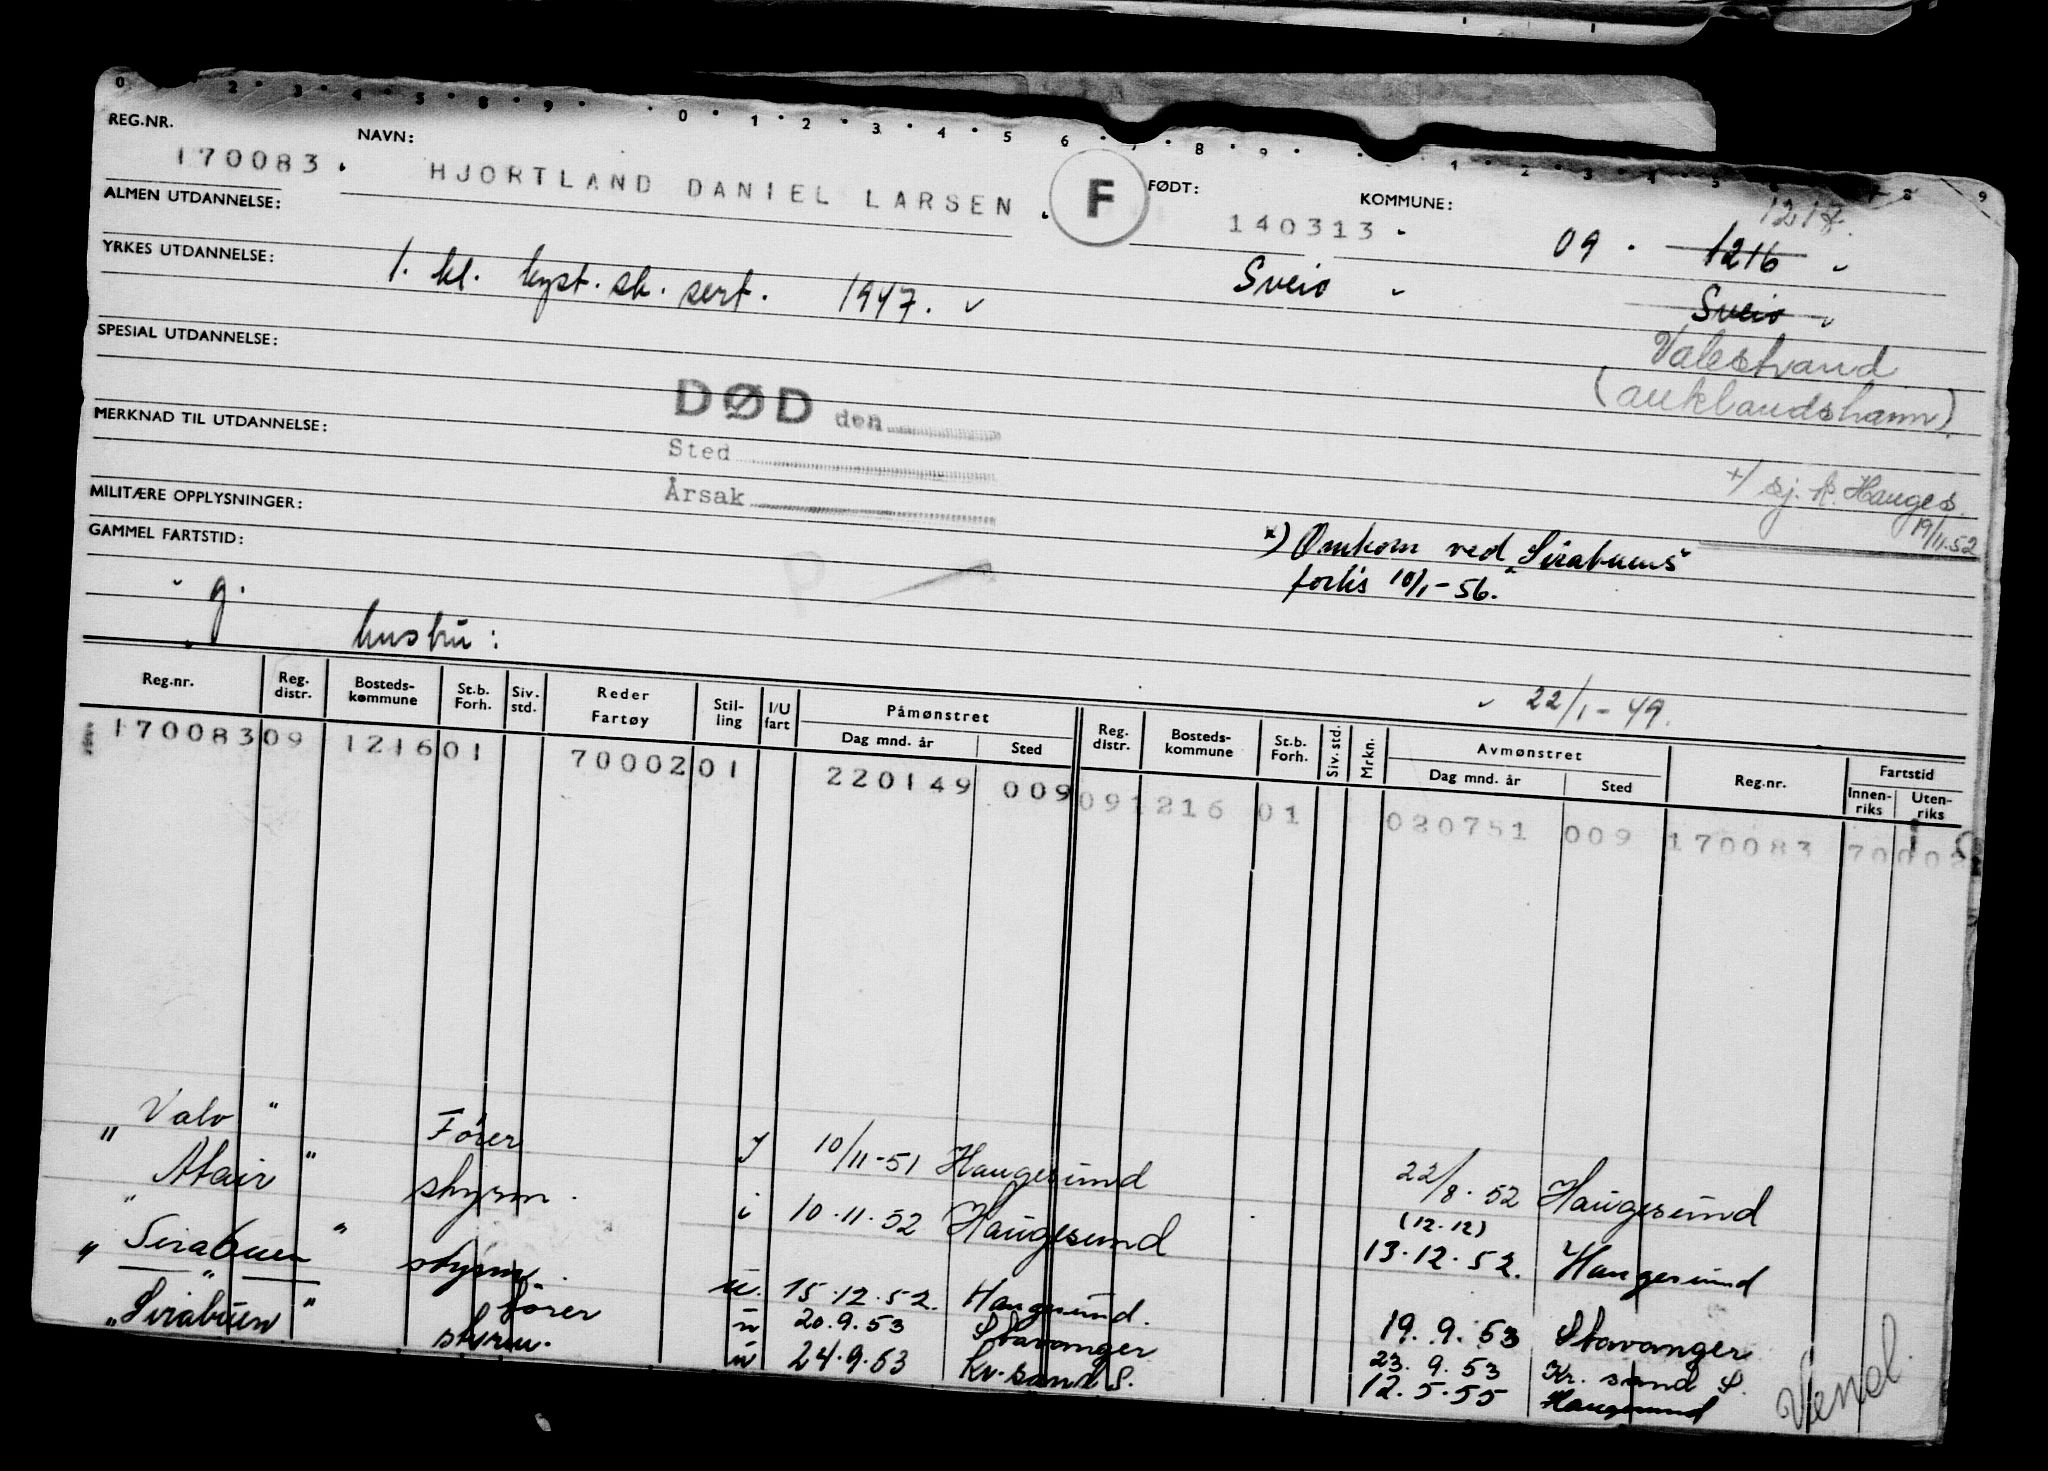 0 2 3 4 5 8 9 0 1 2 3 4 5 6 7 8 9 1 2 3 4 5 6 7 8 9
REG.NR. NAVN: FØDT: KOMMUNE: 1217.
170083. HJORTLAND DANIEL LARSEN. F 140313 09. 1216
ALMEN UTDANNELSE:
Sveio Sveio
YRKES UTDANNELSE: 1. kl. kyst.sk. sert. 1947.
Valestrand
SPESIAL UTDANNELSE: (auklandshamn).
DØD den
MERKNAD TIL UTDANNELSE: Sted
+/ sj. k. Hauges. 19/11.52
Årsak
MILITÆRE OPPLYSNINGER:
x) Omkom ved "Sirabuens"
GAMMEL FARTSTID:
forlis 10/1-56.
g. hustru:
22/1-49.
Reg.nr. Reg. distr. Bosteds-kommune St.b. Forh. Siv. std. Reder Fartøy Stil-ling I/U fart Påmønstret Dag mnd. år Sted Reg. distr. Bosteds-kommune St.b. Forh. Siv. std. Mrkn. Avmønstret Dag mnd. år Sted Reg.nr. Fartstid Innen-riks Uten-riks
170083 09 1216 01 70002 01 220149 009 09 1216 01 080751 009 170083 70002
"Valo" Fører I 10/11-51 Haugesund 22/8.52 Haugesund
"Atair" styrm. i 10.11.52 Haugesund (12.12) 13.12.52. Haugesund
"Sirabuen" styrm. u. 15.12.52. Haugesund. 19.9.53 Stavanger
" fører u 20.9.53 Stavanger 23.9.53 Kr.sand S.
"Sirabuen" styrm. u 24.9.53 Kr.sand S. 12.5.55 Haugesund
Vend.